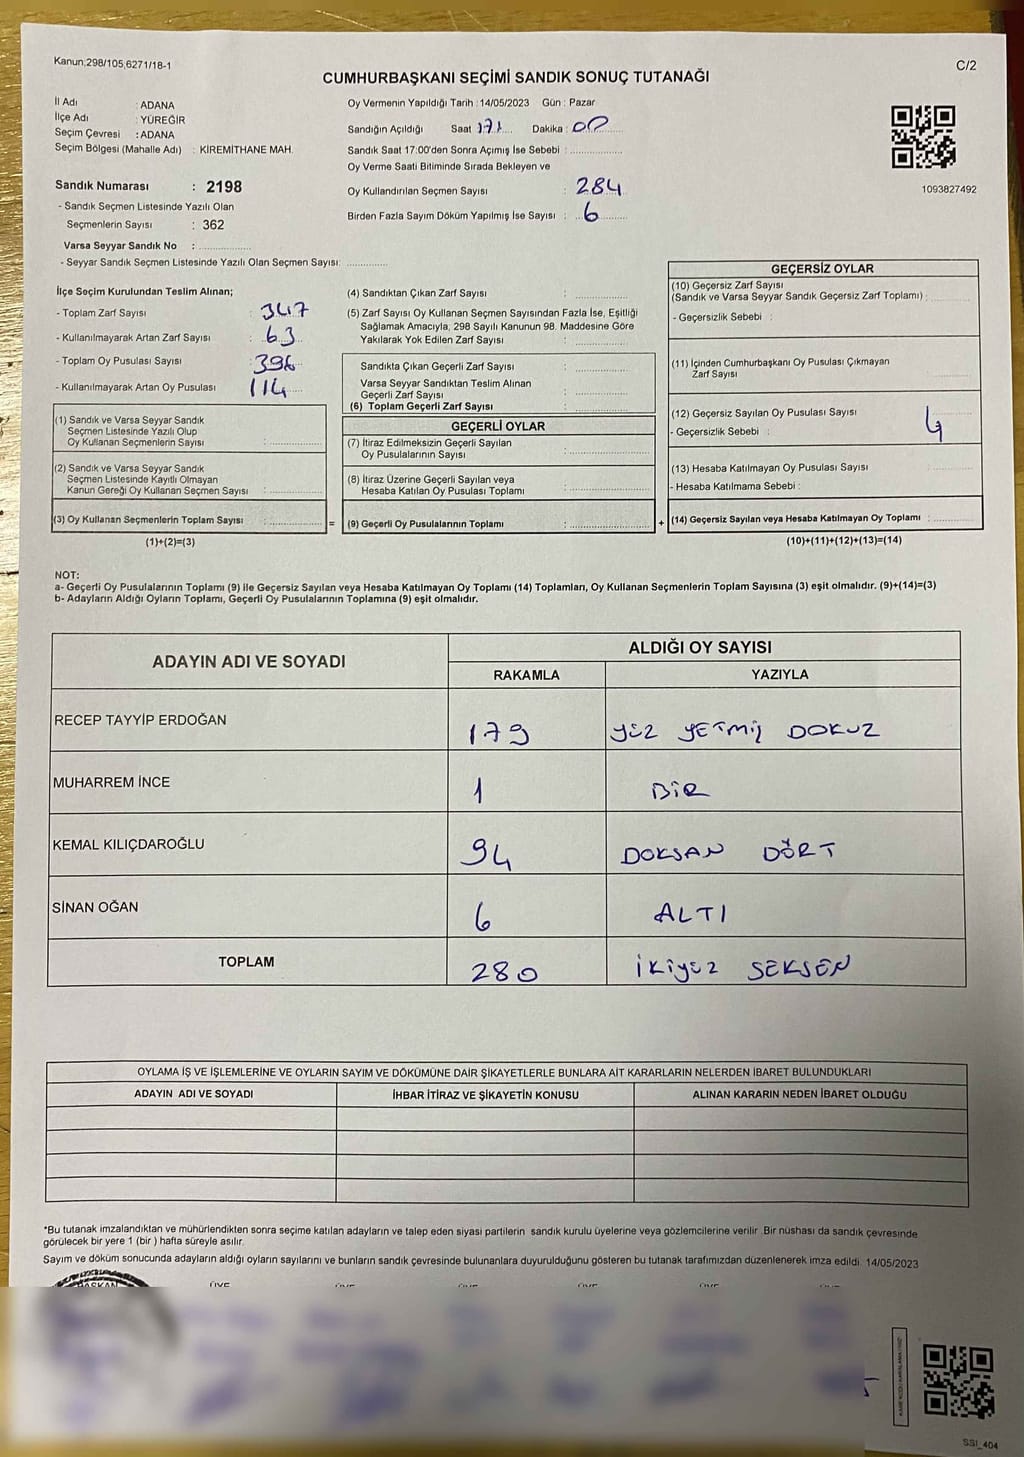 Kanun;298/105,6271/18-1
C/2
CUMHURBAŞKANI SEÇİMİ SANDIK SONUÇ TUTANAĞI
İl Adı : ADANA
İlçe Adı : YÜREĞİR
Seçim Çevresi : ADANA
Seçim Bölgesi (Mahalle Adı) : KİREMİTHANE MAH.
Sandık Numarası : 2198
- Sandık Seçmen Listesinde Yazılı Olan
Seçmenlerin Sayısı : 362
Varsa Seyyar Sandık No : ..............
- Seyyar Sandık Seçmen Listesinde Yazılı Olan Seçmen Sayısı: ..............
Oy Vermenin Yapıldığı Tarih : 14/05/2023 Gün : Pazar
Sandığın Açıldığı Saat 171 Dakika : 00
Sandık Saat 17:00'den Sonra Açımış İse Sebebi : ..............
Oy Verme Saati Bitiminde Sırada Bekleyen ve
Oy Kullandırılan Seçmen Sayısı : 284
Birden Fazla Sayım Döküm Yapılmış İse Sayısı : 6
1093827492
İlçe Seçim Kurulundan Teslim Alınan;
- Toplam Zarf Sayısı : 347
- Kullanılmayarak Artan Zarf Sayısı : 63
- Toplam Oy Pusulası Sayısı : 396
- Kullanılmayarak Artan Oy Pusulası : 114
(1) Sandık ve Varsa Seyyar Sandık
Seçmen Listesinde Yazılı Olup
Oy Kullanan Seçmenlerin Sayısı : ..............
(2) Sandık ve Varsa Seyyar Sandık
Seçmen Listesinde Kayıtlı Olmayan
Kanun Gereği Oy Kullanan Seçmen Sayısı : ..............
(3) Oy Kullanan Seçmenlerin Toplam Sayısı : .............. =
(1)+(2)=(3)
(4) Sandıktan Çıkan Zarf Sayısı : ..............
(5) Zarf Sayısı Oy Kullanan Seçmen Sayısından Fazla İse, Eşitliği
Sağlamak Amacıyla, 298 Sayılı Kanunun 98. Maddesine Göre
Yakılarak Yok Edilen Zarf Sayısı : ..............
Sandıkta Çıkan Geçerli Zarf Sayısı : ..............
Varsa Seyyar Sandıktan Teslim Alınan
Geçerli Zarf Sayısı : ..............
(6) Toplam Geçerli Zarf Sayısı : ..............
GEÇERLİ OYLAR
(7) İtiraz Edilmeksizin Geçerli Sayılan
Oy Pusulalarının Sayısı : ..............
(8) İtiraz Üzerine Geçerli Sayılan veya
Hesaba Katılan Oy Pusulası Toplamı : ..............
(9) Geçerli Oy Pusulalarının Toplamı : .............. +
GEÇERSİZ OYLAR
(10) Geçersiz Zarf Sayısı
(Sandık ve Varsa Seyyar Sandık Geçersiz Zarf Toplamı) :
- Geçersizlik Sebebi :
(11) İçinden Cumhurbaşkanı Oy Pusulası Çıkmayan
Zarf Sayısı
(12) Geçersiz Sayılan Oy Pusulası Sayısı 4
- Geçersizlik Sebebi :
(13) Hesaba Katılmayan Oy Pusulası Sayısı : ..............
- Hesaba Katılmama Sebebi :
(14) Geçersiz Sayılan veya Hesaba Katılmayan Oy Toplamı : ..............
(10)+(11)+(12)+(13)=(14)
NOT:
a- Geçerli Oy Pusulalarının Toplamı (9) ile Geçersiz Sayılan veya Hesaba Katılmayan Oy Toplamı (14) Toplamları, Oy Kullanan Seçmenlerin Toplam Sayısına (3) eşit olmalıdır. (9)+(14)=(3)
b- Adayların Aldığı Oyların Toplamı, Geçerli Oy Pusulalarının Toplamına (9) eşit olmalıdır.
ADAYIN ADI VE SOYADI
ALDIĞI OY SAYISI
RAKAMLA YAZIYLA
RECEP TAYYİP ERDOĞAN 179 YÜZ YETMİŞ DOKUZ
MUHARREM İNCE 1 BİR
KEMAL KILIÇDAROĞLU 94 DOKSAN DÖRT
SİNAN OĞAN 6 ALTI
TOPLAM 280 İKİYÜZ SEKSEN
OYLAMA İŞ VE İŞLEMLERİNE VE OYLARIN SAYIM VE DÖKÜMÜNE DAİR ŞİKAYETLERLE BUNLARA AİT KARARLARIN NELERDEN İBARET BULUNDUKLARI
ADAYIN ADI VE SOYADI İHBAR İTİRAZ VE ŞİKAYETİN KONUSU ALINAN KARARIN NEDEN İBARET OLDUĞU
*Bu tutanak imzalandıktan ve mühürlendikten sonra seçime katılan adayların ve talep eden siyasi partilerin sandık kurulu üyelerine veya gözlemcilerine verilir. Bir nüshası da sandık çevresinde
görülecek bir yere 1 (bir ) hafta süreyle asılır.
Sayım ve döküm sonucunda adayların aldığı oyların sayılarını ve bunların sandık çevresinde bulunanlara duyurulduğunu gösteren bu tutanak tarafımızdan düzenlenerek imza edildi. 14/05/2023
BAŞKAN ÜYE ÜYE ÜYE ÜYE ÜYE
SSI_404